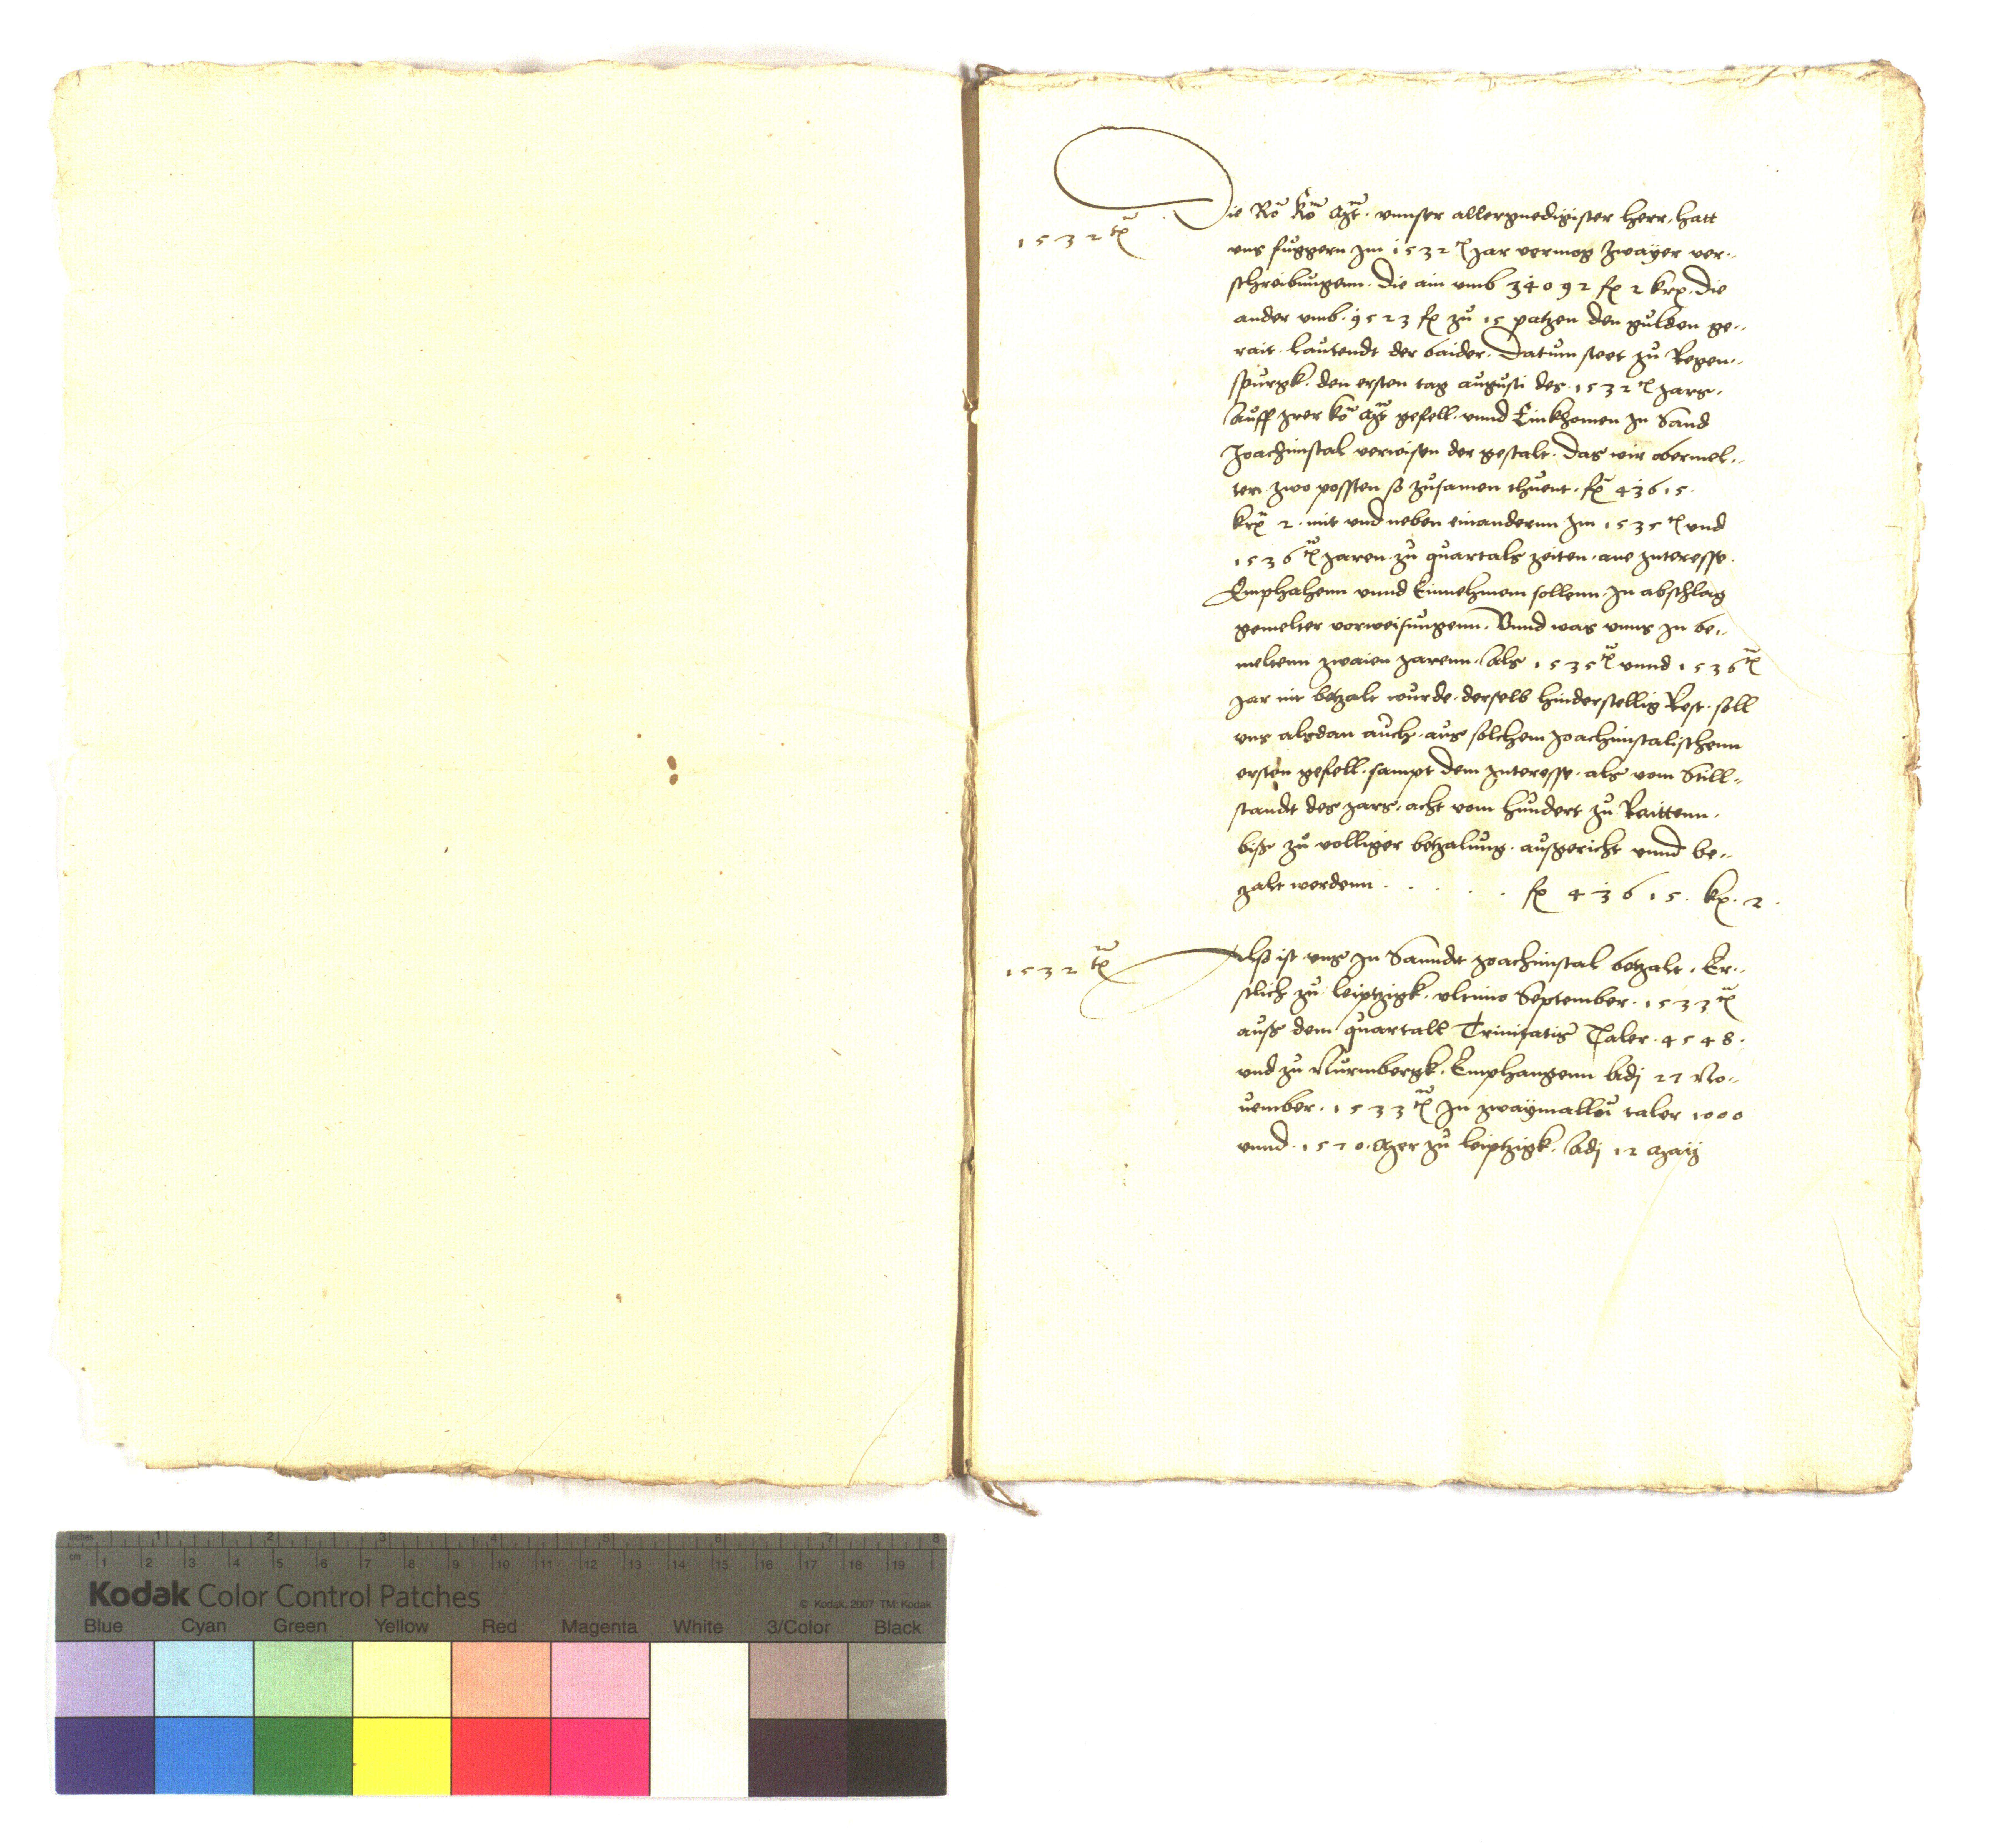 Die Rö Kö Mt. vnnser allergnedigister herr, hatt
1532ten
vns fuggern Im 1532ten Jar vermog Zwayer ver-
schreibungenn. die ain vmb 34092 fl 2 krz. die
ander vmb. 9523 fl zu 15 patzen den gulden ge-
rait. lautendt der baider. Datum steet zu Regen-
spurgk. den ersten tag augusti des. 1532ten Jars.
Auff Irer kö Mt gefell. vnnd Einkhomen In Sand
Joachimstal verwisen der gestalt. Das wir obermel-
ten zwo possten so zusamen thuent. fl 43615.
krz 2. mit vnd neben einandernn Im 1535ten vnd
1536ten Jaren. zu quartals zeiten. ane Interesse.
Emphahenn vnnd Einnehmem sollenn. In abschlag
gemelter vorweisungenn. Vnnd was vnns In be-
meltenn zwaien Jarenn. Als 1535ten vnnd 1536ten
Jar nit betzalt wurde. derselb hinderstellig Rest. soll
vns alsdan auch. aus solchem Joachimstalischenn
ersten gefell. sampt dem Interesse. als vom Still-
standt des Jars. acht vom hundert zu Raittenn.
biss zu volliger betzalung. aussgericht vnnd be-
zalt werdenn . . . . . fl 43615. kz. 2.
1532ten
Also ist. vns In Sanndt Joachimstal betzalt. Er-
stlich zu leiptzigk. vltimo September. 1533ten
auss dem quartall Trinitatis Taler. 4548.
vnd zu Nurmbergk. Emphangenn Adj 27 No-
uember. 1533ten In zwaymallen taler 1000
vnnd. 1570. Mer zu leiptzigk. Adj 12 Maij
inches 1 2 3 4 5 6 7 8
cm 1 2 3 4 5 6 7 8 9 10 11 12 13 14 15 16 17 18 19
Kodak Color Control Patches © Kodak, 2007 TM: Kodak
Blue Cyan Green Yellow Red Magenta White 3/Color Black